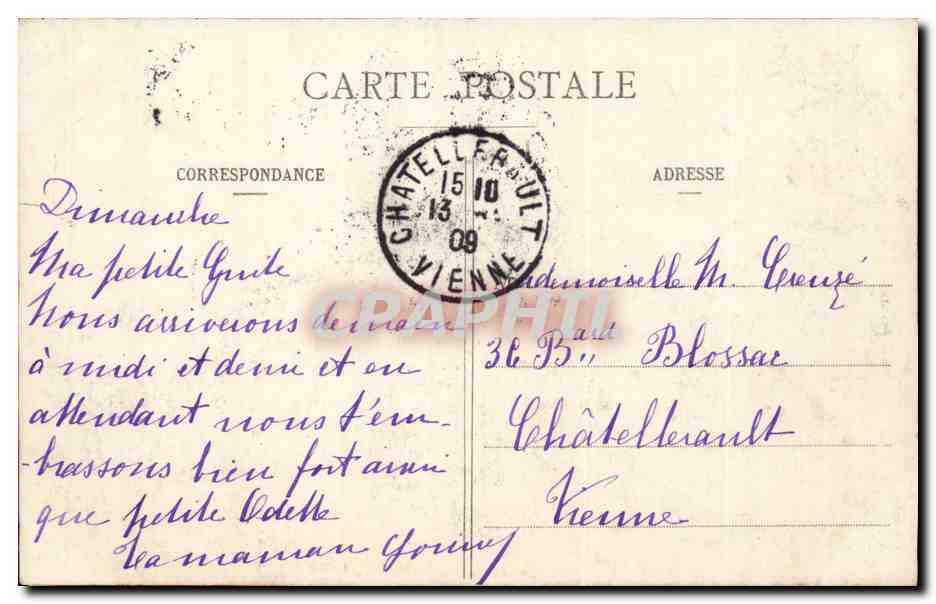 CARTE POSTALE
CORRESPONDANCE
ADRESSE
CHATELLERAULT
15 10
13
09
VIENNE
Dimanche
Ma petite Guite
Nous arriverons demain
à midi et demi et en
attendant nous t'em-
-brassons bien fort ainsi
que petite Odette
Ta maman
Mademoiselle M. Creuzé
36 Bard Blossac
Châtellerault
Vienne
GRAPHTI